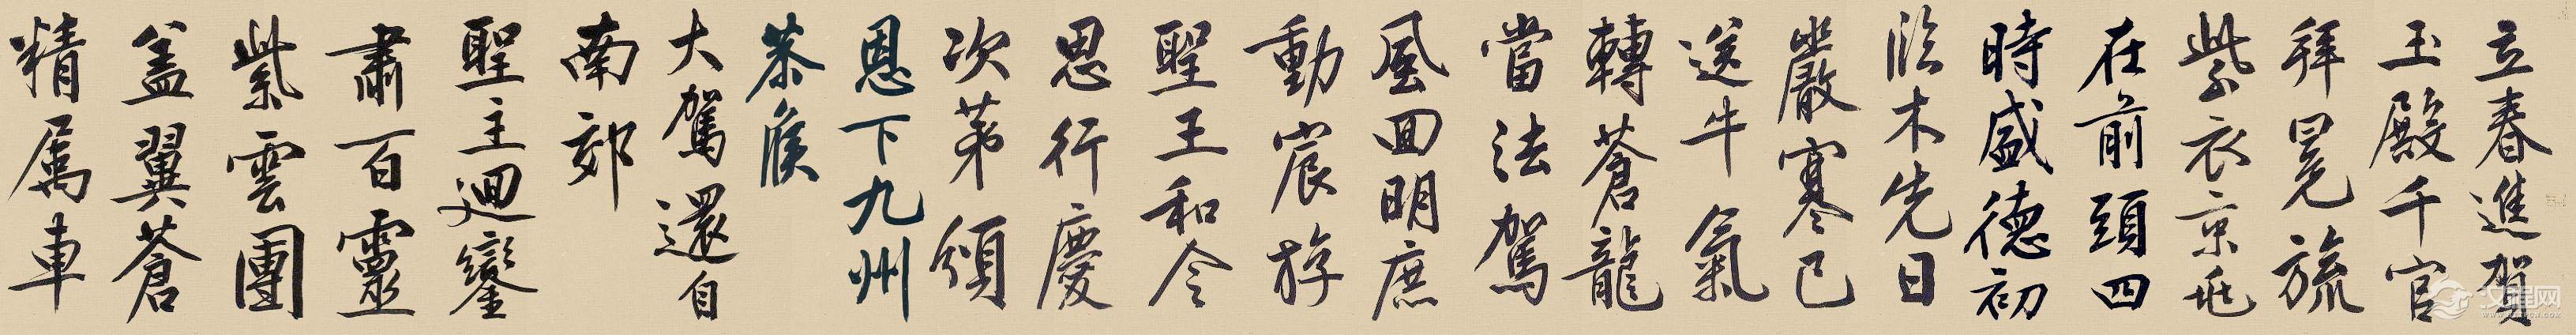 立春進賀
玉殿千官
拜冕旒
紫衣京兆
在前頭四
時盛德初
臨木先日
嚴寒已
送牛氣
轉蒼龍
當法駕
風回明庶
動宸游
聖王和令
思行慶
次第頒
恩下九州
恭候
大駕還自
南郊
聖主迴鑾
肅百靈
紫雲團
蓋翼蒼
精属車